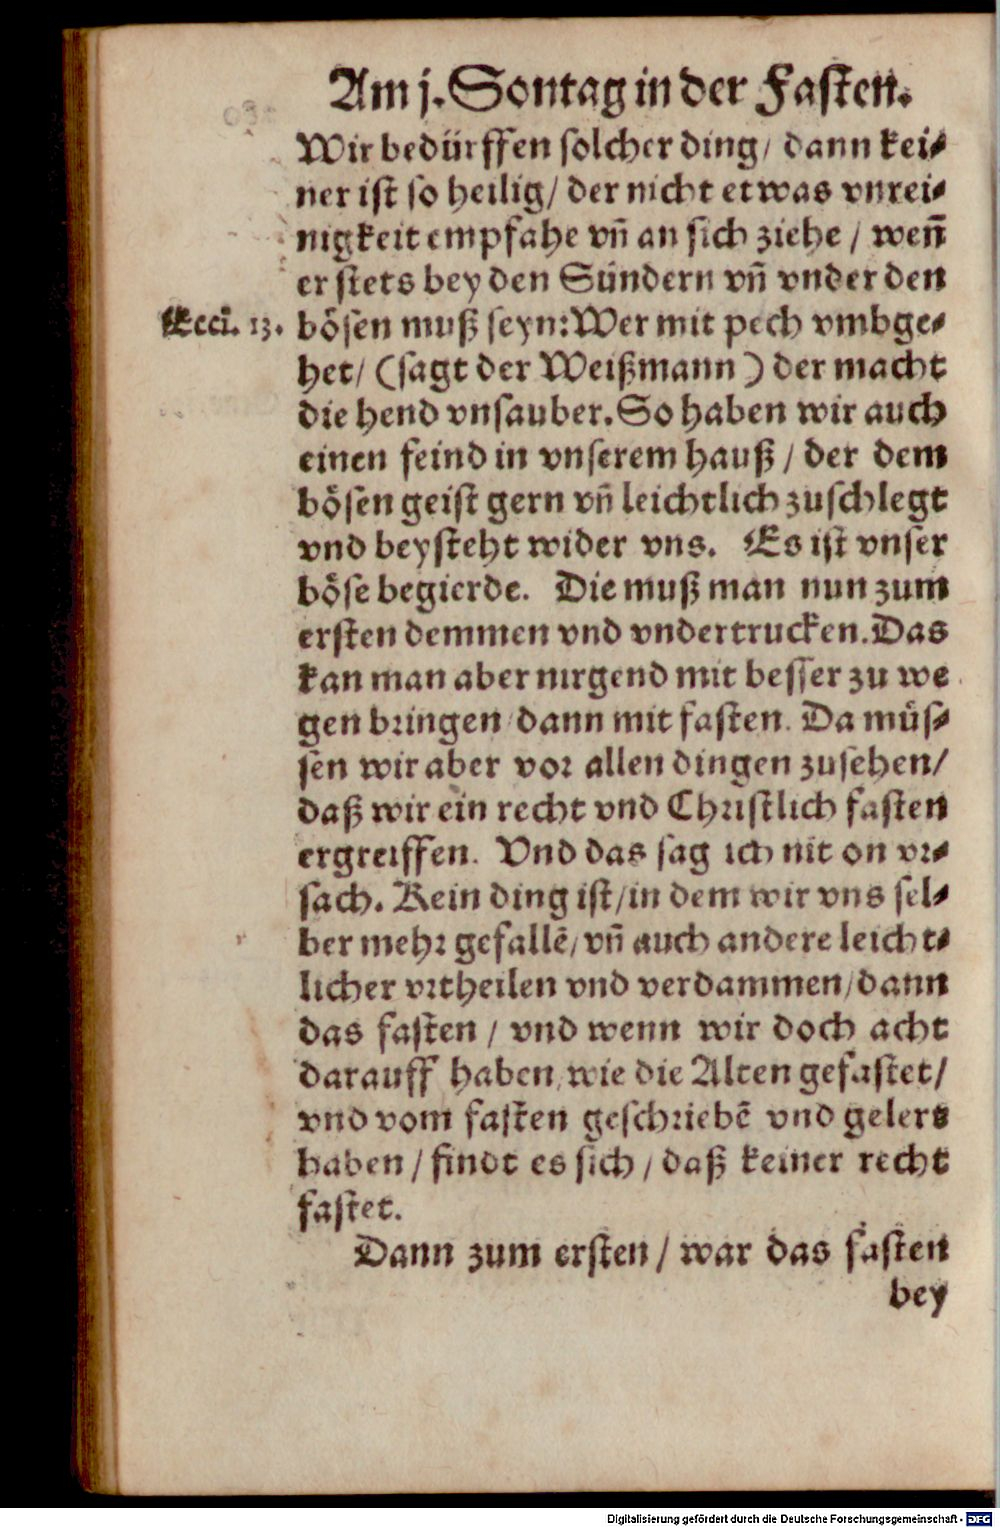 Am j. Sontag in der Fasten.
Wir bedürffen solcher ding/ dann kei-
ner ist so heilig/ der nicht etwas vnrei-
nigkeit empfahe vñ an sich ziehe / weñ
er stets bey den Sündern vñ vnder den
Eccl. 13. bösen muß seyn: Wer mit pech vmbge-
het/ (sagt der Weißmann) der macht
die hend vnsauber. So haben wir auch
einen feind in vnserem hauß / der dem
bösen geist gern vñ leichtlich zuschlegt
vnd beysteht wider vns. Es ist vnser
böse begierde. Die muß man nun zum
ersten demmen vnd vndertrucken. Das
kan man aber nirgend mit besser zu we
gen bringen/ dann mit fasten. Da müs-
sen wir aber vor allen dingen zusehen/
daß wir ein recht vnd Christlich fasten
ergreiffen. Vnd das sag ich nit on vr-
sach. Kein ding ist/ in dem wir vns sel-
ber mehr gefallē/ vñ auch andere leicht-
licher vrtheilen vnd verdammen/ dann
das fasten / vnd wenn wir doch acht
darauff haben/ wie die Alten gefastet/
vnd vom fasten geschriebē vnd gelers
haben / findt es sich / daß keiner recht
fastet.
Dann zum ersten / war das fasten
bey
Digitalisierung gefördert durch die Deutsche Forschungsgemeinschaft - DFG